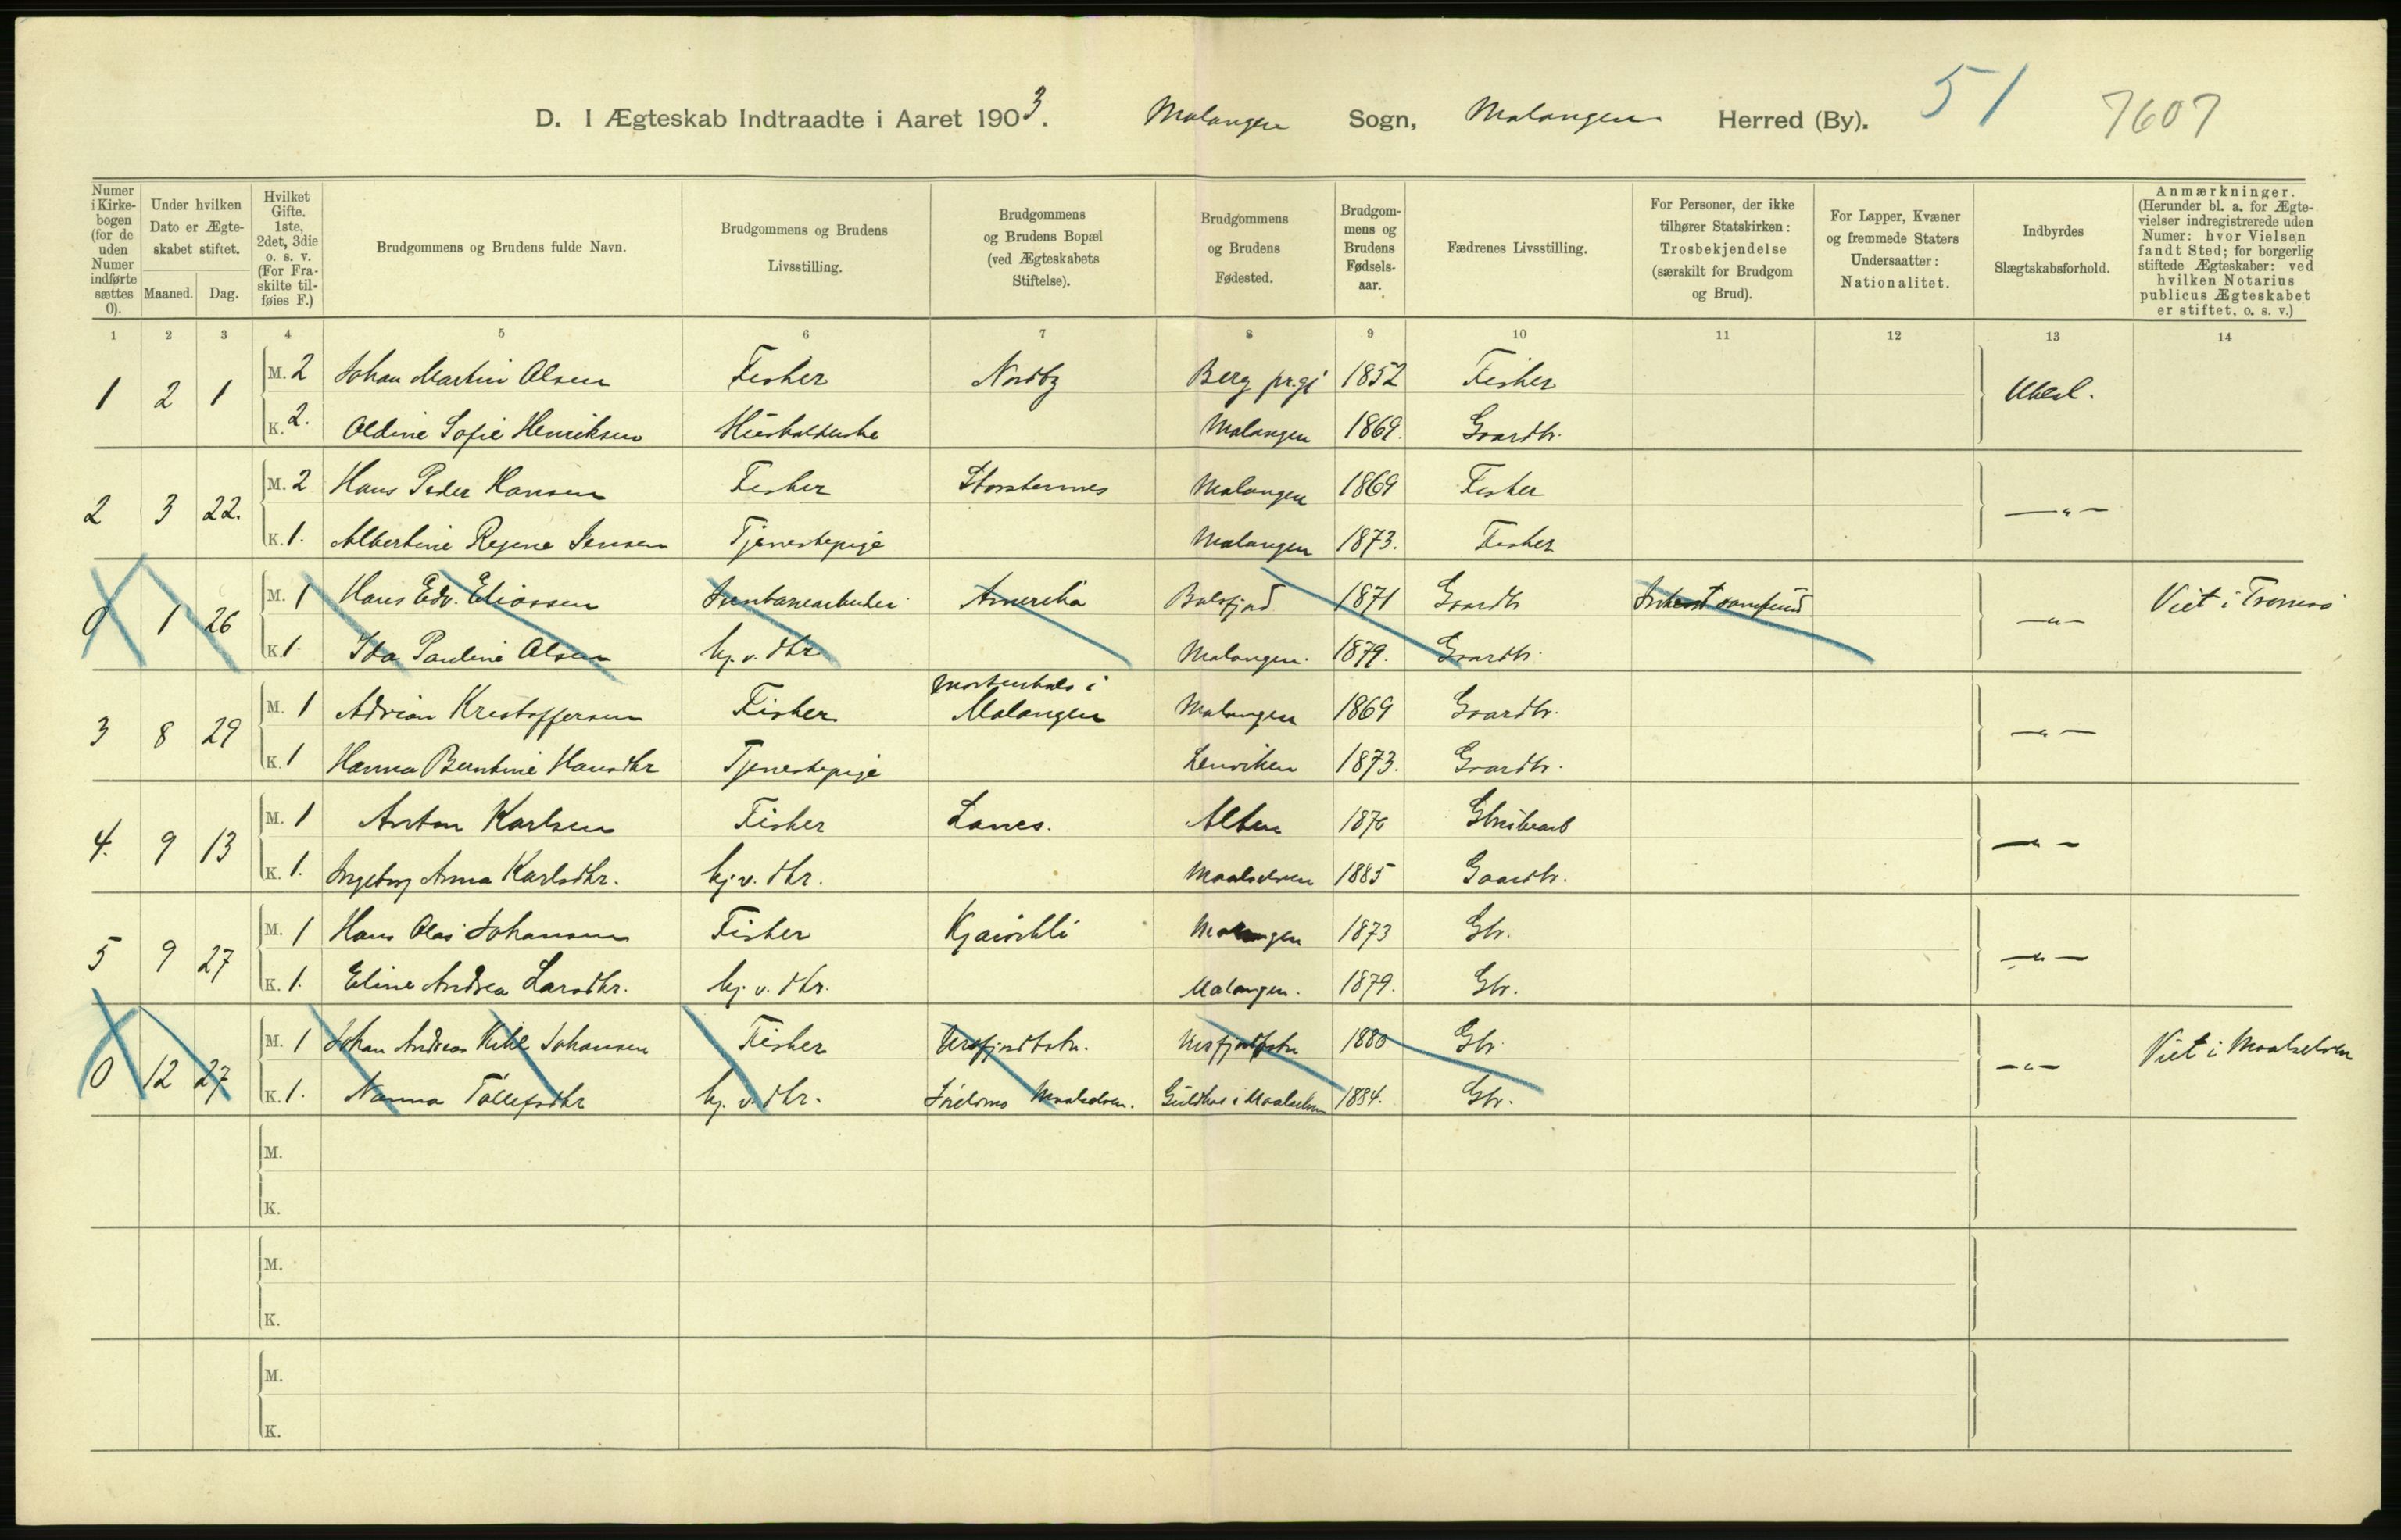 D. I Ægteskab Indtraadte i Aaret 1903. Malangen Sogn, Malangen Herred (By). 51 7607
Numer i Kirkebogen (for de uden Numer indførte sættes 0).
Under hvilken Dato er Ægteskabet stiftet.
Maaned. Dag.
Hvilket Gifte. 1ste, 2det, 3die o. s. v. (For Fraskilte tilføies F.)
Brudgommens og Brudens fulde Navn.
Brudgommens og Brudens Livsstilling.
Brudgommens og Brudens Bopæl (ved Ægteskabets Stiftelse).
Brudgommens og Brudens Fødested.
Brudgommens og Brudens Fødselsaar.
Fædrenes Livsstilling.
For Personer, der ikke tilhører Statskirken: Trosbekjendelse (særskilt for Brudgom og Brud).
For Lapper, Kvæner og fremmede Staters Undersaatter: Nationalitet.
Indbyrdes Slægtskabsforhold.
Anmærkninger. (Herunder bl. a. for Ægtevielser indregistrerede uden Numer: hvor Vielsen fandt Sted; for borgerlig stiftede Ægteskaber: ved hvilken Notarius publicus Ægteskabet er stiftet, o. s. v.)
1 2 3 4 5 6 7 8 9 10 11 12 13 14
1 2 1 M. 2 Johan Martin Olsen Fisker Nordby Berg pr.gj 1852 Fisker Ubesl.
K. 2. Oldine Sofie Henriksen Husholderske Malangen 1869. Gaardbr.
2 3 22. M. 2 Hans Peder Hansen Fisker Storstennes Malangen 1869 Fisker —"—
K. 1. Albertine Regine Jensen Tjenestepige Malangen 1873. Fisker
0 1 26 M. 1 Hans Edv. Eliassen Jernbanearbeider Amerika Balsfjord 1871 Gaardbr —"— Viet i Tromsø
K. 1. Ida Pauline Olsen hj. v. dtr. Malangen. 1879. Gaardbr.
3 8 29 M. 1 Adrian Kristoffersen Fisker Mortenhals i Malangen Malangen 1869 Gaardbr. —"—
K. 1 Hanna Berntine Hansdtr Tjenestepige Lenviken 1873. Gaardbr.
4. 9 13 M. 1 Anton Karlsen Fisker Lanes. Alten 1876 —"—
K. 1. Ingeborg Anna Karlsdtr. hj. v. dtr. Maalselven 1885 Gaardbr.
5 9 27 M. 1 Hans Olai Johansen Fisker Malangen 1873 Gbr. —"—
K. 1. Eline Andrea Larsdtr. hj. v. dtr. Malangen. 1879. Gbr.
0 12 27 M. 1 Johan Andreas Kihl Johansen Fisker 1880 Gbr. —"— Viet i Maalselven
K. 1. Nanna Tollefsdtr hj. v. dtr. Maalselven. i Maalselven 1884. Gbr.
M.
K.
M.
K.
M.
K.